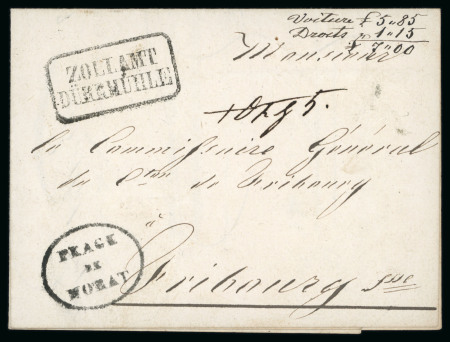 Voiture £ 5"85
Droits " 1"15
£ 7"00
ZOLLAMT
DÜRRMÜHLE
Monsieur
le Commissaire Général
du Cton de Fribourg
à
PEAGE
DE
MORAT
Fribourg sse